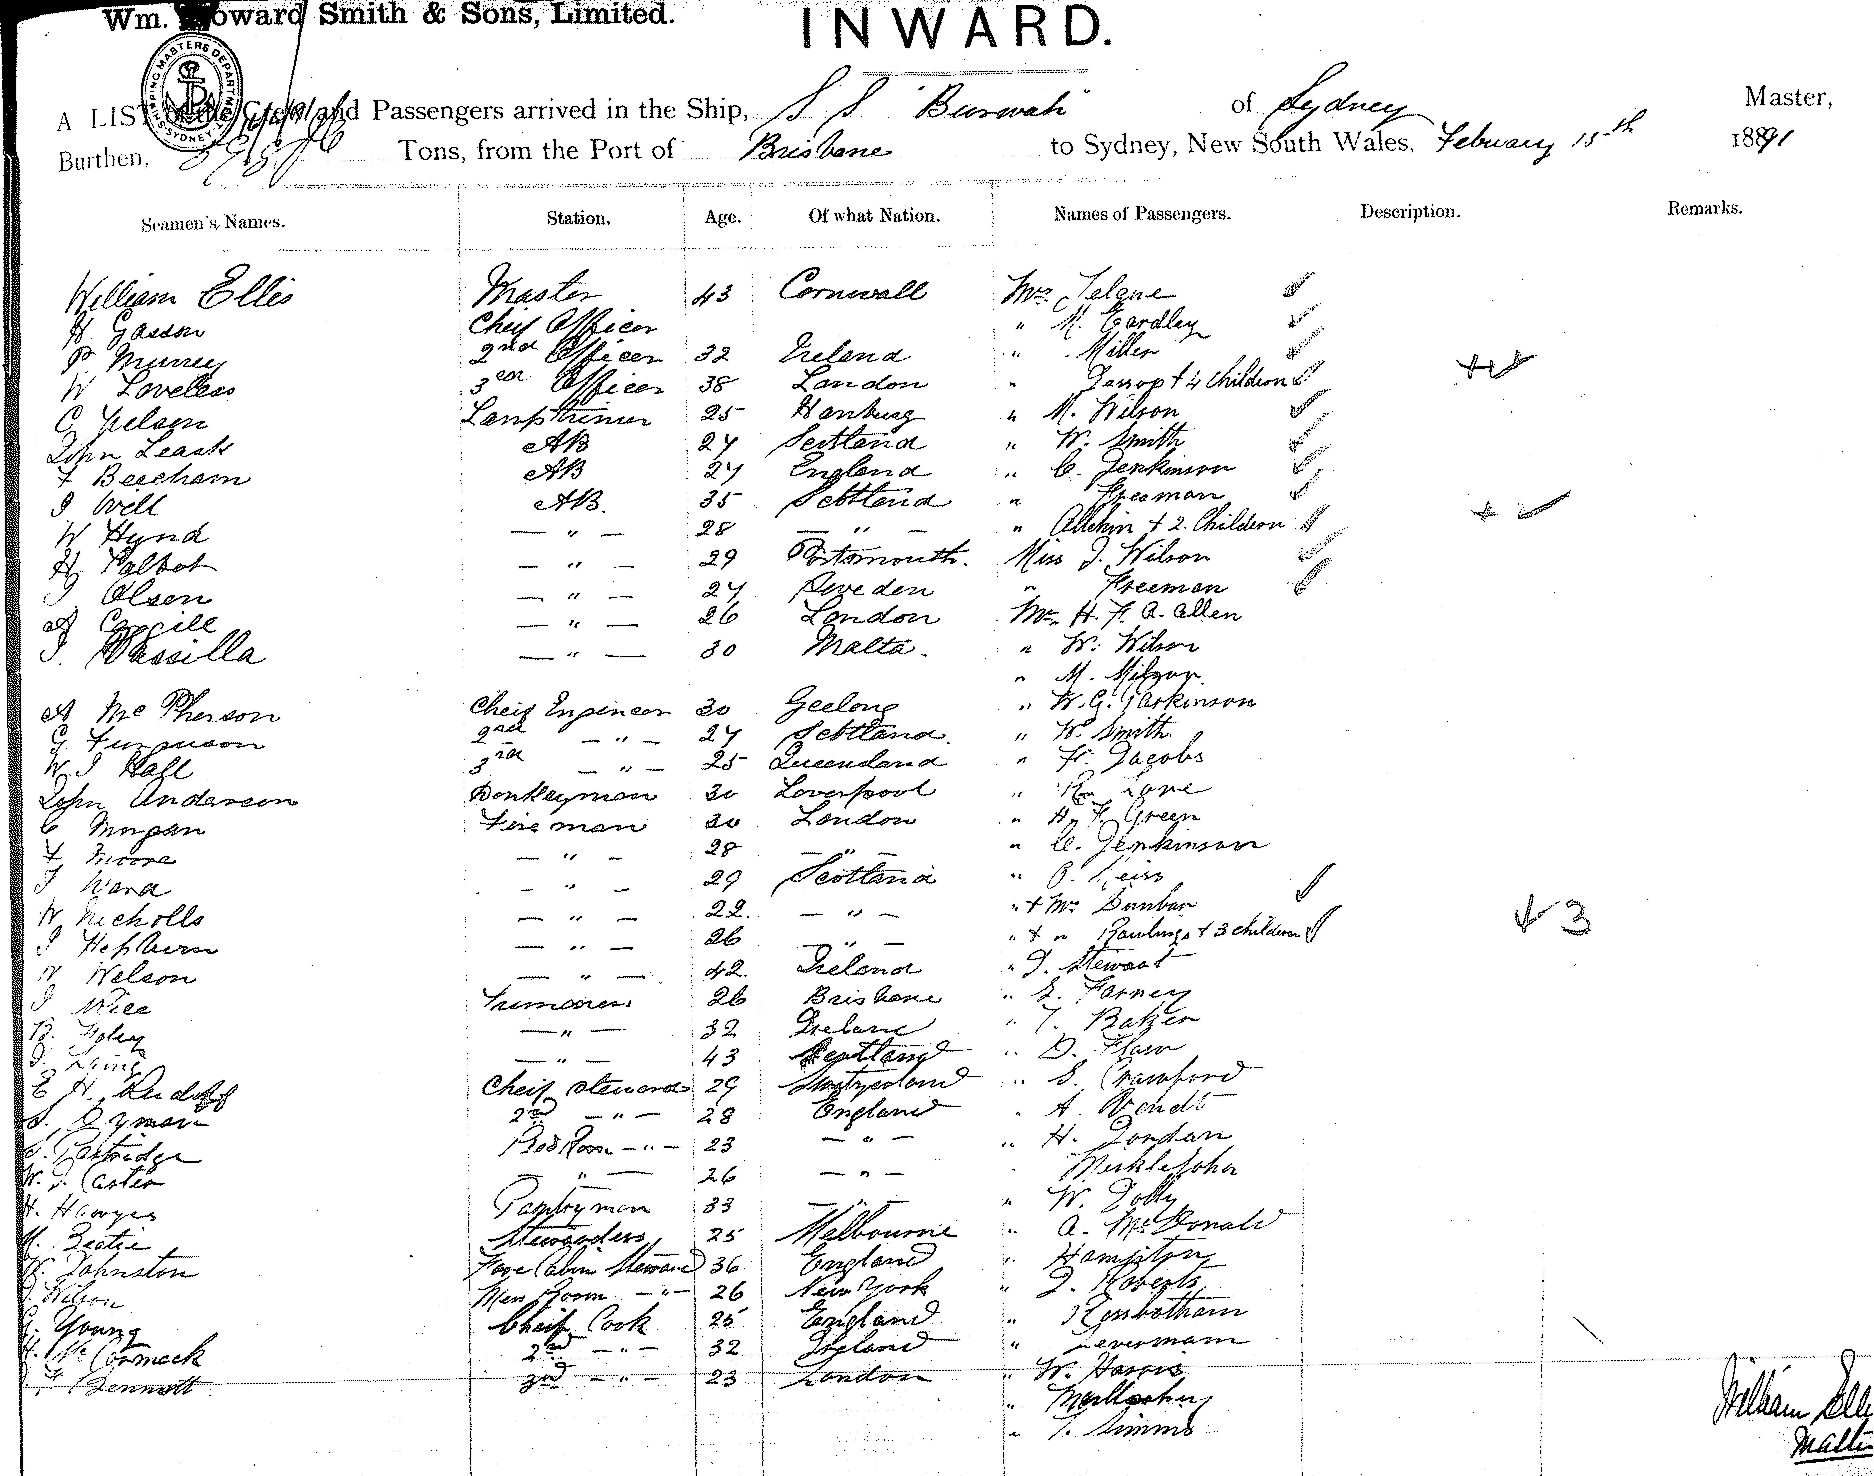 Wm. Howard Smith & Sons, Limited.
INWARD.
A LIST of the Crew and Passengers arrived in the Ship, S S "Burwah" of Sydney Master,
Burthen, Tons, from the Port of Brisbane to Sydney, New South Wales, February 15th 1891
Seamen's Names. Station. Age. Of what Nation. Names of Passengers. Description. Remarks.
William Ellis Master 43 Cornwall Mrs
H Gasson Cheif Officer " M. Eardley
P. Murrey 2nd Officer 32 Ireland " Miller
W Loveless 3rd Officer 38 London " Jassop + 4 Children
C Lamptrimer 25 Hamburg " M. Wilson
John Leask AB 27 Scotland " W. Smith
F Beecham AB 27 England " C. Jenkinson
J Well AB. 35 Scotland " Freeman
W Hynd — " — 28 — " — " Allchin + 2. Children
H Talbot — " — 29 Portsmouth. Miss J. Wilson
J Olsen — " — 27 Sweden " Freeman
A — " — 26 London Mr. H. F. A. Allen
J. Vassilla — " — 30 Malta. " W. Wilson
" M.
A Mc Pherson Cheif Engineer 30 Geelong " W. G. Parkinson
G Furguson 2nd — " — 27 Scotland. " W. Smith.
W. J Hall 3rd — " — 25 Queensland " F. Jacobs
John Anderson Donkeyman 30 Loverpool " Lane
C Morgan Fireman 30 London " H. F. Green
F Moore — " — 28 — " — " C. Jenkinson
J Ward — " — 29 Scotland "
W Nicholls — " — 22. — " — " + Mrs Dunbar
J Hepburn — " — 26 — " — " + " Rawlings + 3 children 3
W Nelson — " — 42. Ireland " J. Stewart
J Rice Trimmers 26 Brisbane " Farney
B. Foley — " — 32 Ireland " T. Baker
J. King — " — 43 Scotland " D. Flaw
E H. Rudolf Cheif Steward 29 Switzerland " S. Crawford
S. Ryman 2nd — " — 28 England " A. Wendt
S. Partridge Bed Room — " — 23 — " — " H. Jordan
W. J. Carter — " — 26 — " — Micklejohn
H. Hawyes Pantryman 33 — " — " W. Jolly
M. Beatie Stewardess 25 Melbourne " A. McDonald
W. Johnston Fore Cabin Steward 36 England " Hampton
J. Wilson Mess Room — " — 26 New York " J. Roberts
G. Young Cheif Cook 25 England " Rossbotham
H. McCormack 2nd — " — 32 Ireland " Levermann
F Bennett 3rd — " — 23 London " W. Harris
"
" T. Simms
William Elli
Master